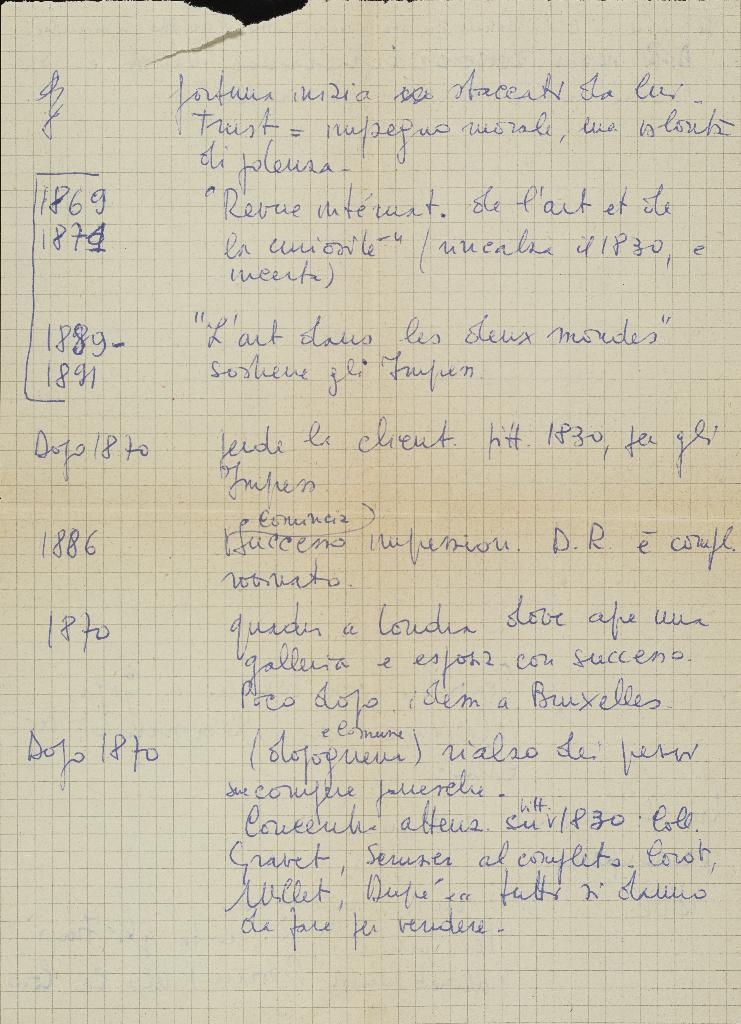 fortuna inizia staccati da lui.
Trust = impegno morale, una volontà
di potenza.
1869 "Revue internat. de l'art et de
1871 la curiosité" (rincalza il 1830, e
incerta)
1889- "L'art dans les deux mondes"
1891 sostiene gli Impress.
Dopo 1870 perde la client. pitt. 1830, per gli
Impress.
Comincia
1886 successo impression. D.R. è compl.
rovinato.
1870 quadri a Londra dove apre una
galleria e espos. con successo.
Poco dopo idem a Bruxelles.
e Comune
Dopo 1870 (dopoguerra) rialzo dei prezzi
compere
pitt.
Concentr. attenz. su 1830. Coll.
Gravet, al completo. Corot,
Millet, Dupré ... tutti si danno
da fare per vendere.